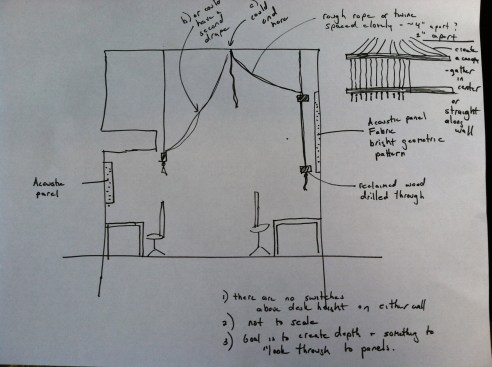 b) or could
have a
second
drape
a)
could
end
here
rough rope or twine
spaced closely - ~4" apart?
1" apart
create
a canopy
- gather
in
center
or
straight
along
wall
Acoustic panel
Fabric
bright geometric
pattern
Acoustic
panel
reclaimed wood
drilled through
1) there are no switches
above desk height on either wall
2) not to scale
3) Goal is to create depth + something to
"look through to panels.